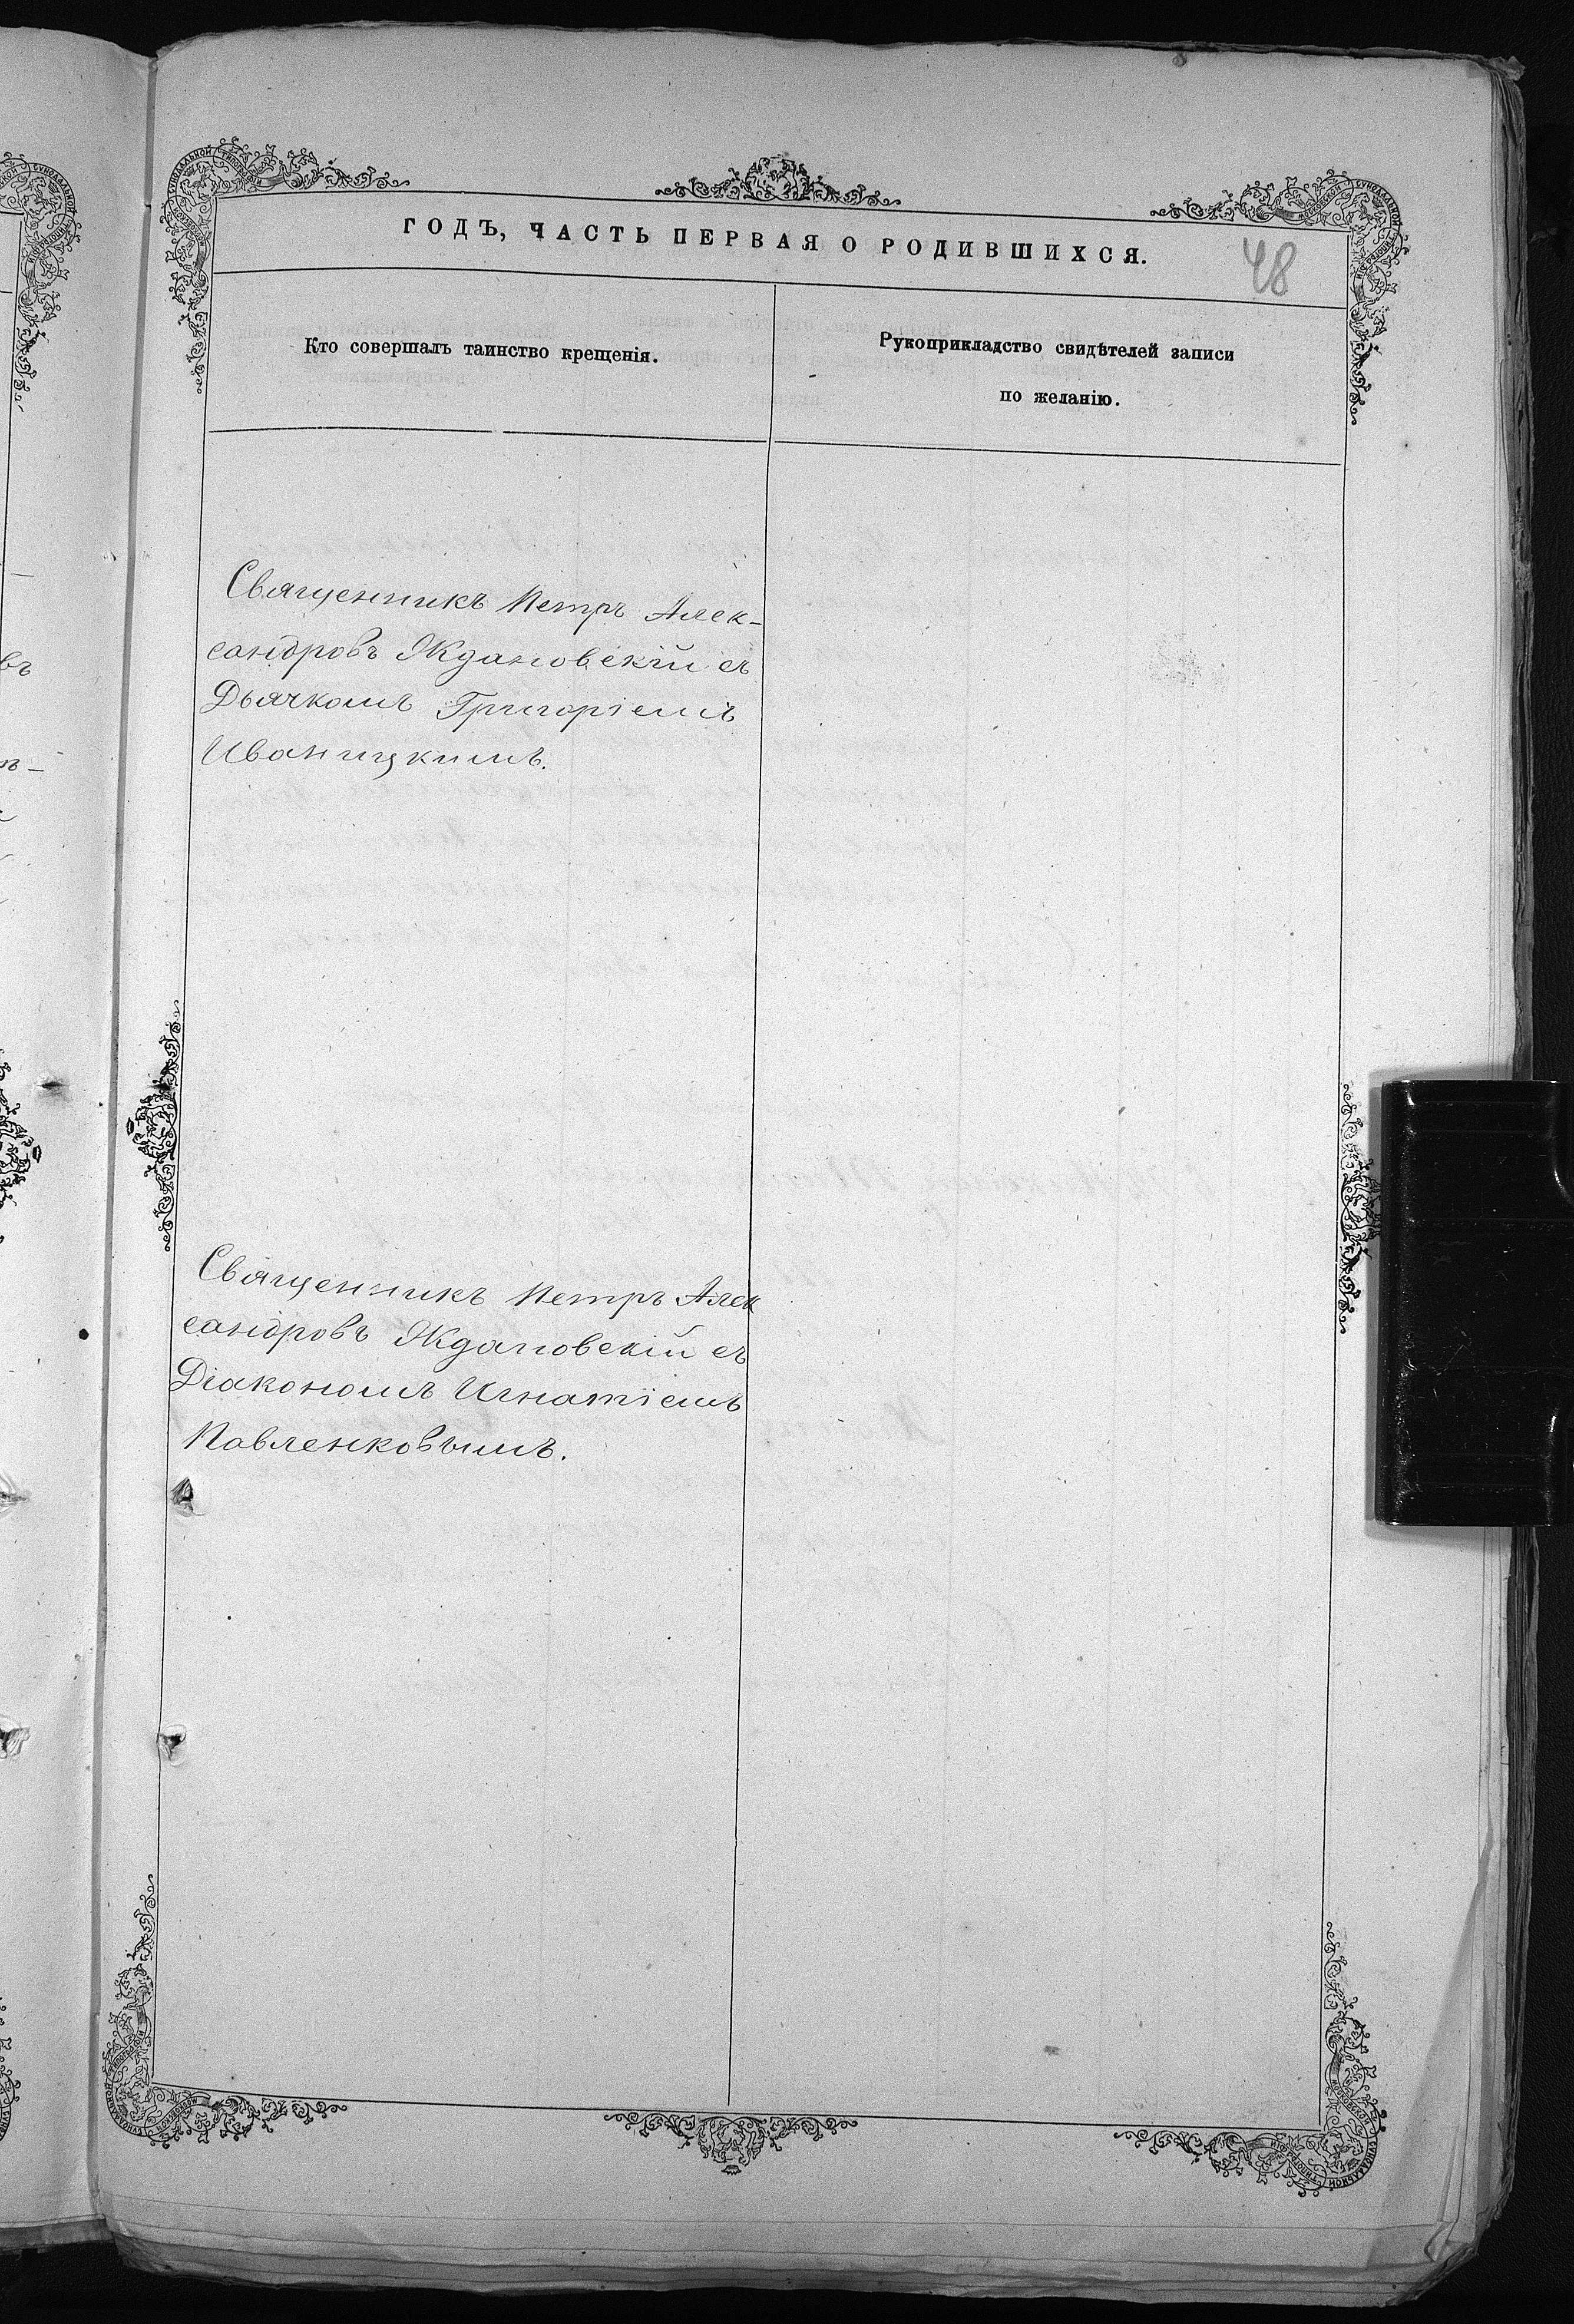 ГОДЪ, ЧАСТЬ ПЕРВАЯ О РОДИВШИХСЯ.
48
Кто совершалъ таинство крещенія.
Рукоприкладство свидѣтелей записи
по желанію.
Священникъ Петръ Алек-
сандровъ Ждановскій съ
Дьячкомъ Григоріемъ
Иваницкимъ.
Священникъ Петръ Алек
сандровъ Ждановскій съ
Діакономъ Игнатіемъ
Павленковымъ.